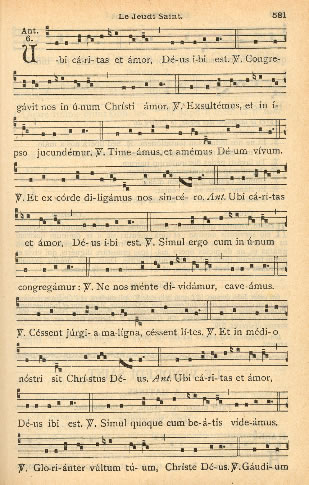 Le Jeudi Saint. 581
Ant.
6.
U-bi cá-ri-tas et ámor, Dé-us i-bi est. ℣. Congre-
gávit nos in ú-num Chrísti ámor. ℣. Exsultémus, et in í-
pso jucundémur. ℣. Time-ámus, et amémus Dé-um vívum.
℣. Et ex córde di-ligámus nos sin-cé- ro. Ant. Ubi cá-ri-tas
et ámor, Dé-us i-bi est. ℣. Simul ergo cum in ú-num
congregámur : ℣. Ne nos ménte di-vidámur, cave-ámus.
℣. Céssent júrgi-a ma-lígna, céssent lí-tes. ℣. Et in médi-o
nóstri sit Chrí-stus Dé- us. Ant. Ubi cá-ri-tas et ámor,
Dé-us ibi est. ℣. Simul quoque cum be-á-tis vide-ámus.
℣. Glo-ri-ánter vúltum tú-um, Chríste Dé-us. ℣. Gáudi-um